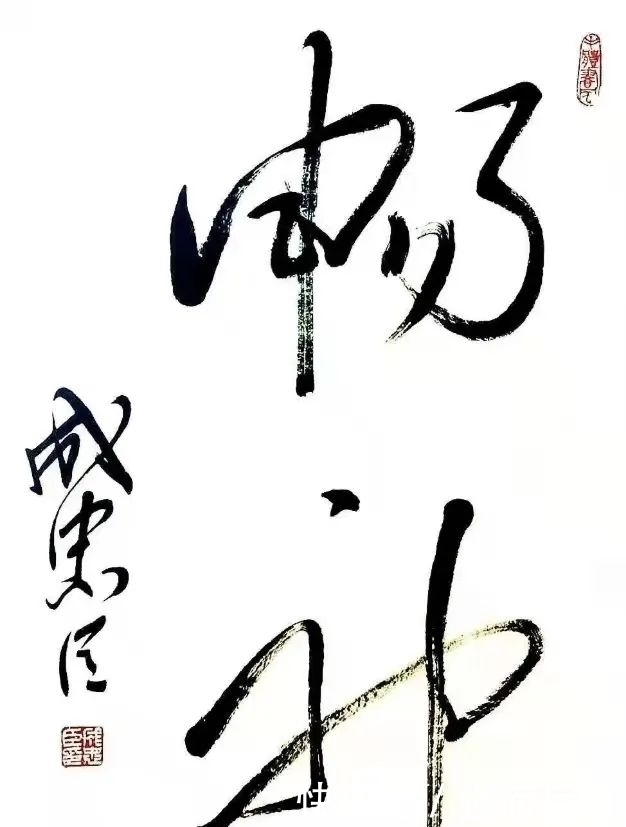 畅神
成忠臣